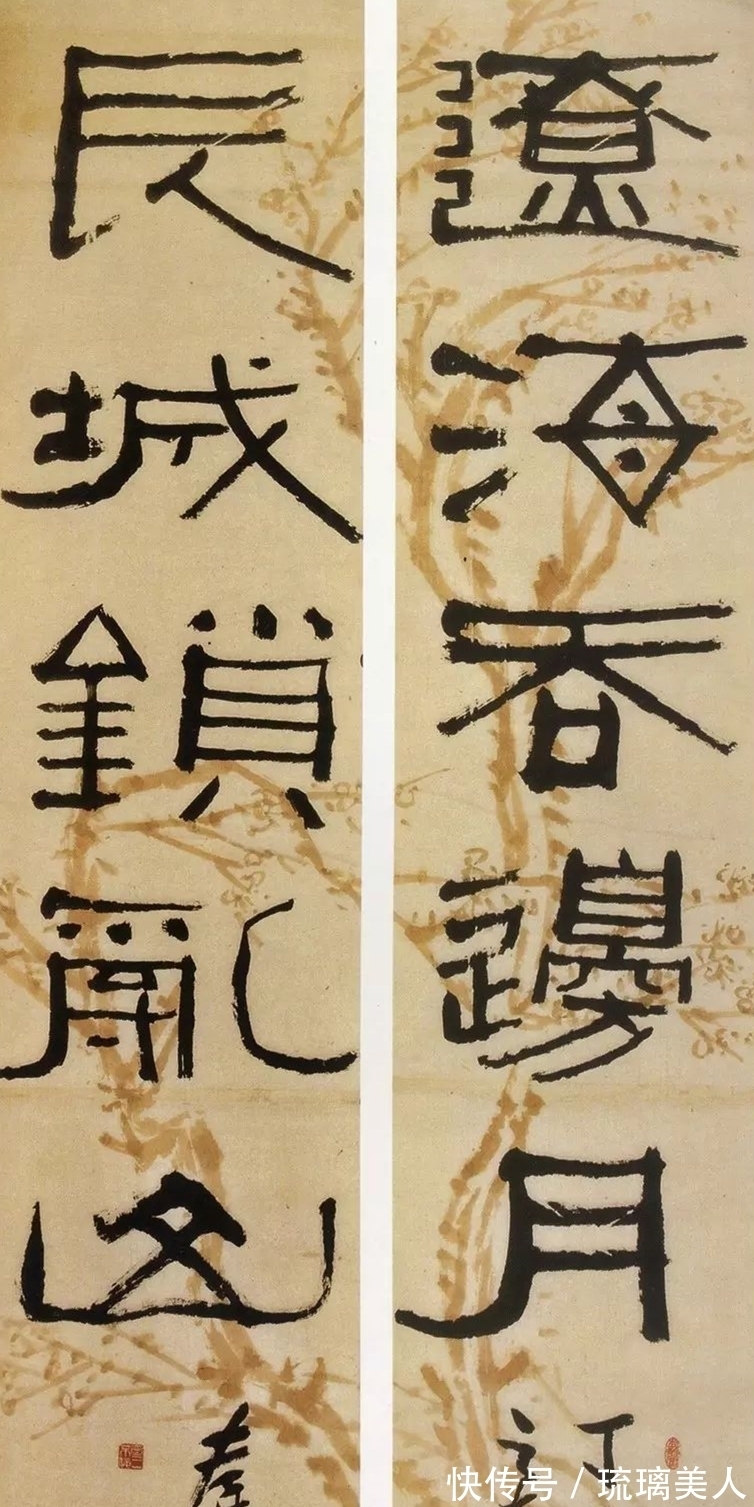 遼海吞邊月
長城鎖亂山
快传号 / 琉璃美人